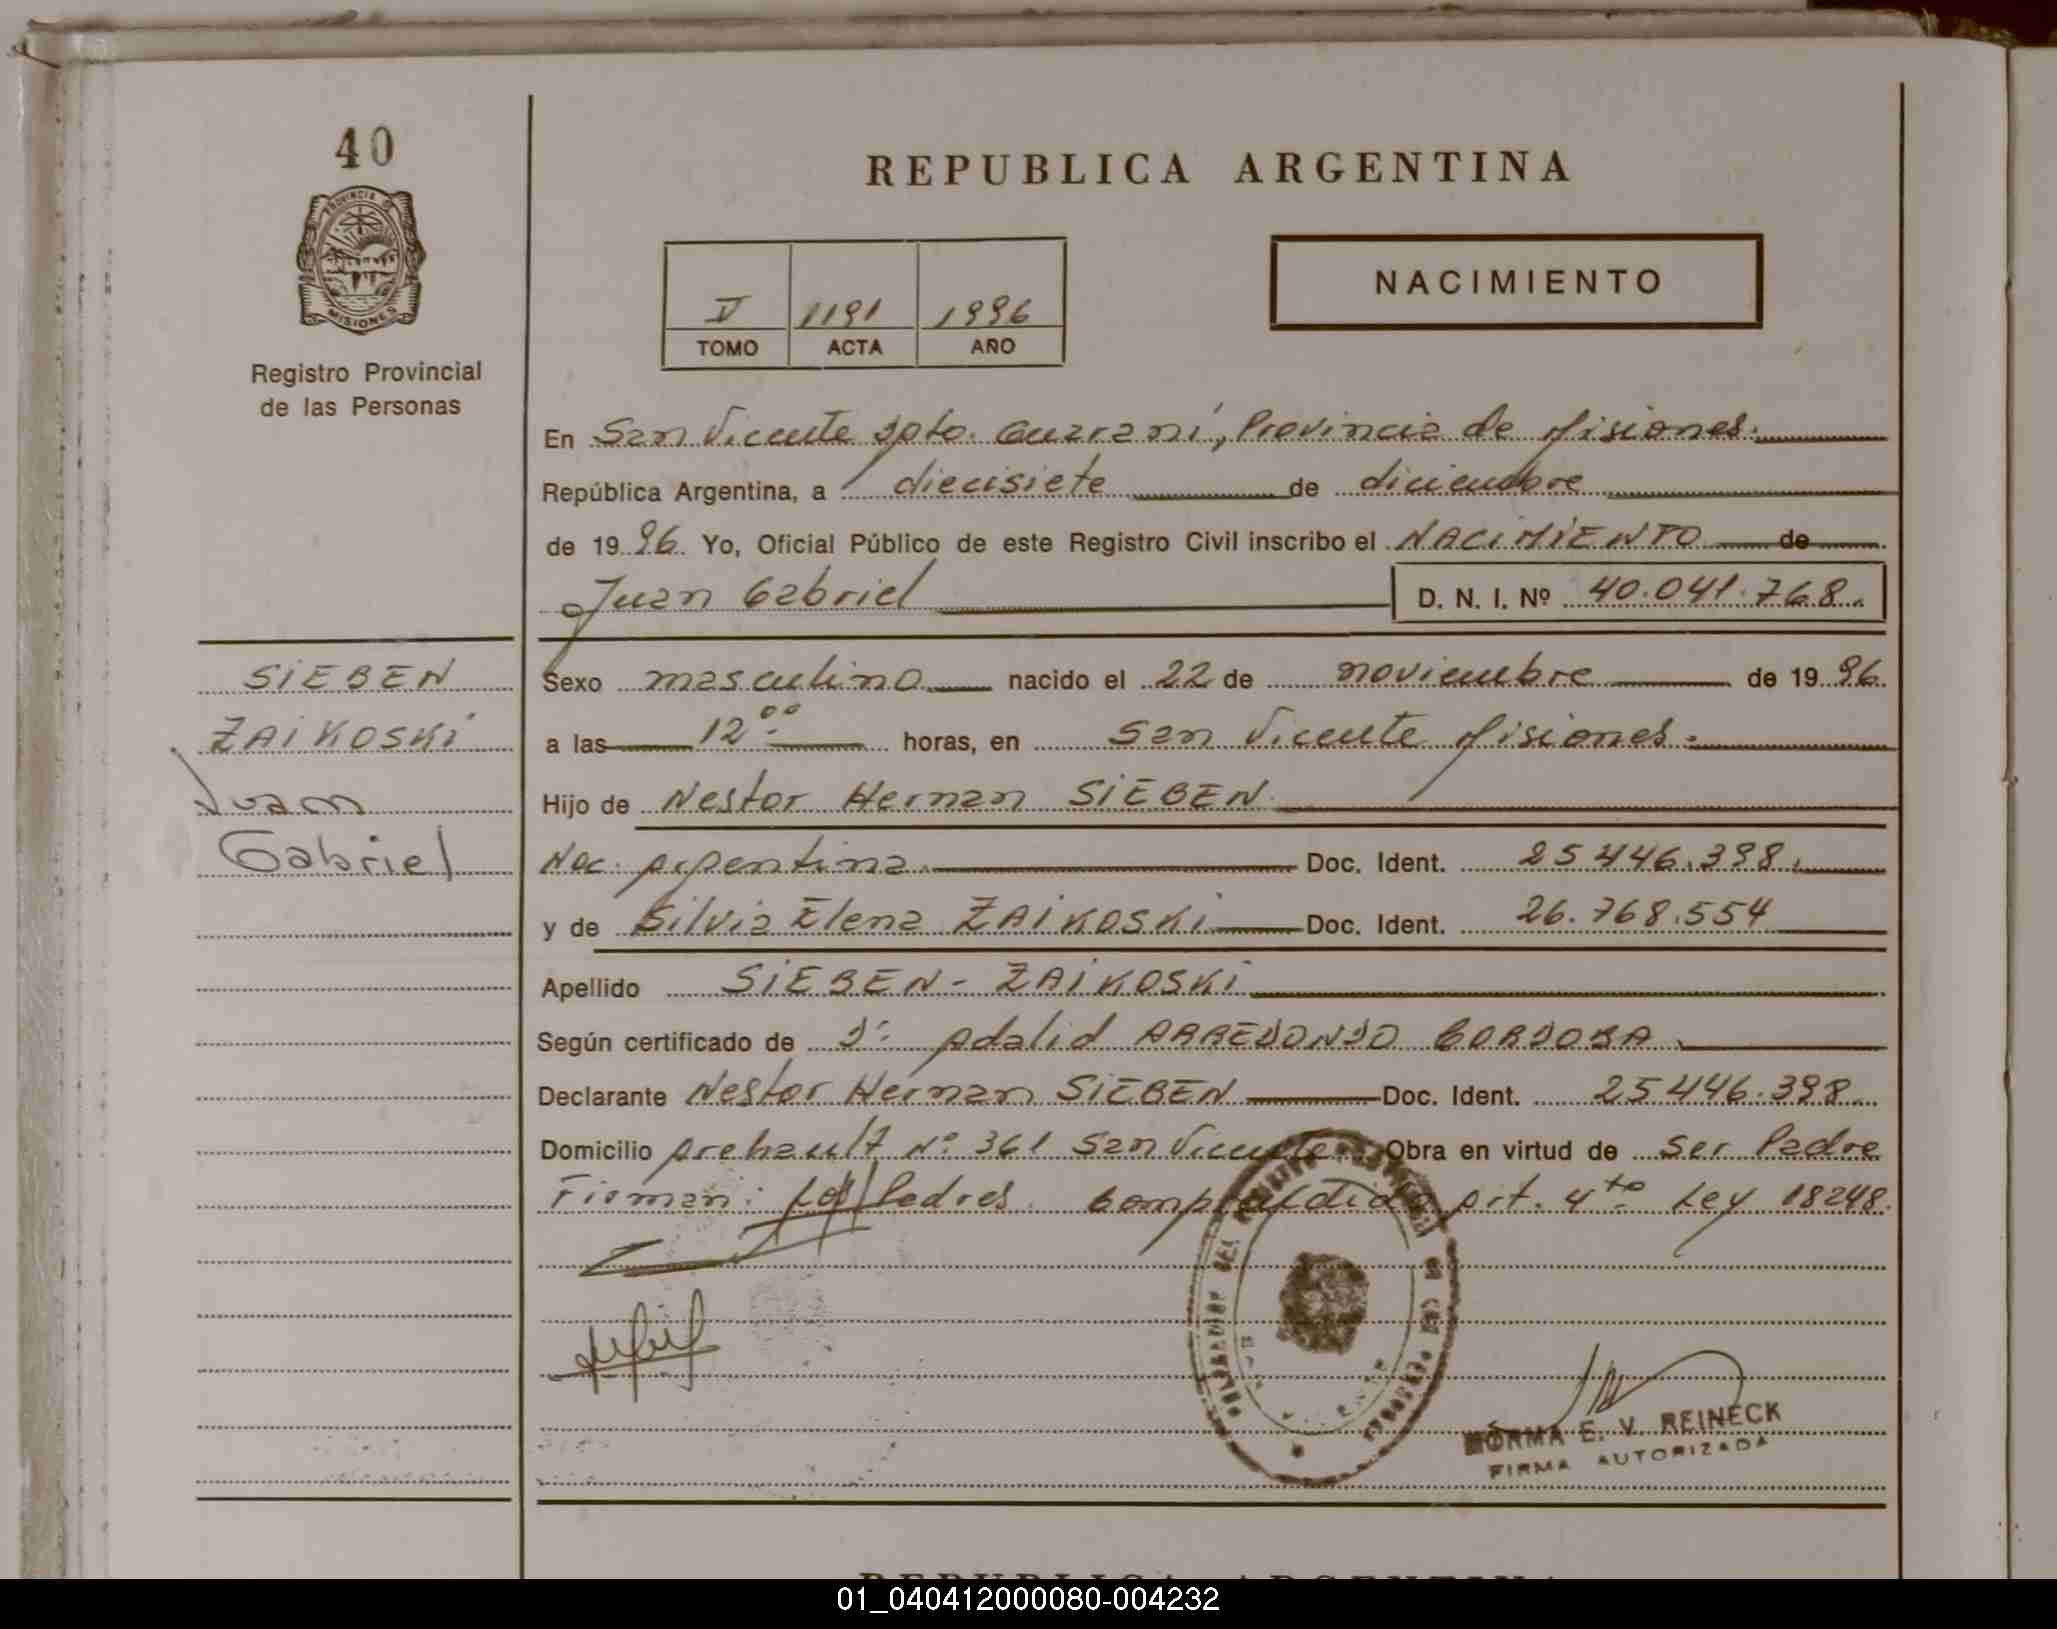 40
REPUBLICA ARGENTINA
PROVINCIA D
MISIONES
Registro Provincial
de las Personas
V 1191 1996
TOMO ACTA AÑO
NACIMIENTO
En San Vicente Dpto. Guaraní, Provincia de Misiones.
República Argentina, a diecisiete de diciembre
de 1996. Yo, Oficial Público de este Registro Civil inscribo el NACIMIENTO de
Juan Gabriel D. N. I. Nº 40.041.768.
SIEBEN
ZAIKOSKI
Juan
Gabriel
Sexo masculino nacido el 22 de noviembre de 1996.
a las 12:00 horas, en San Vicente Misiones.
Hijo de Nestor Hernan SIEBEN.
Nac. Argentina. Doc. Ident. 25446.398.
y de Silvia Elena ZAIKOSKI Doc. Ident. 26.768.554
Apellido SIEBEN - ZAIKOSKI
Según certificado de Dr. Adalid ARREDONDO CORDOBA
Declarante Nestor Hernan SIEBEN Doc. Ident. 25446.398.
Domicilio N° 361 San Vicente Obra en virtud de Ser Padre
Firman: Los Padres. Comprendido Art. 4to Ley 18248.
NORMA E. V. REINECK
FIRMA AUTORIZADA
REPUBLICA ARGENTINA
01_040412000080-004232